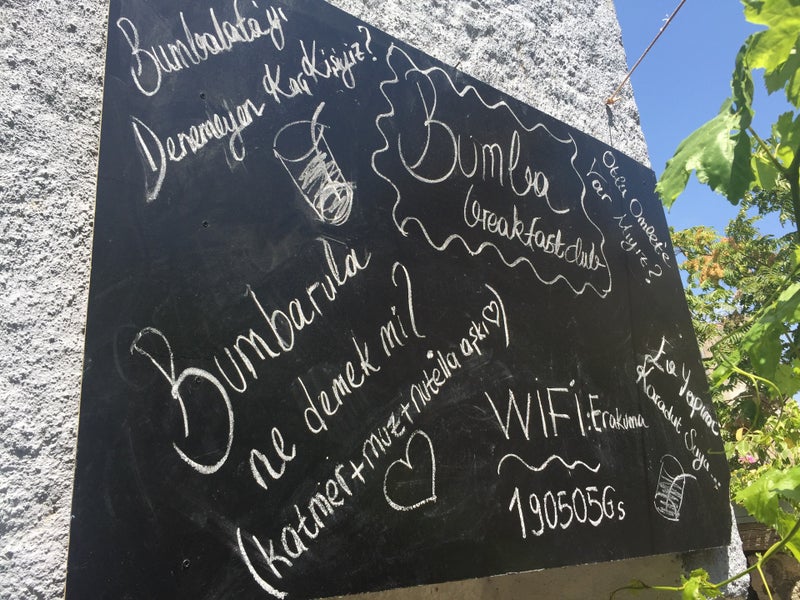 Bumbalatayı
Denemeyen Kaç Kişiyiz?
Bumba
breakfast club
Otlu Omlete
Var Mıyız?
Bumbarula
ne demek mi?
(katmer+muz+nutella aşkı♡)
WiFi: Erakuma
190505Gs
Ev Yapımı
Karadut Suyu